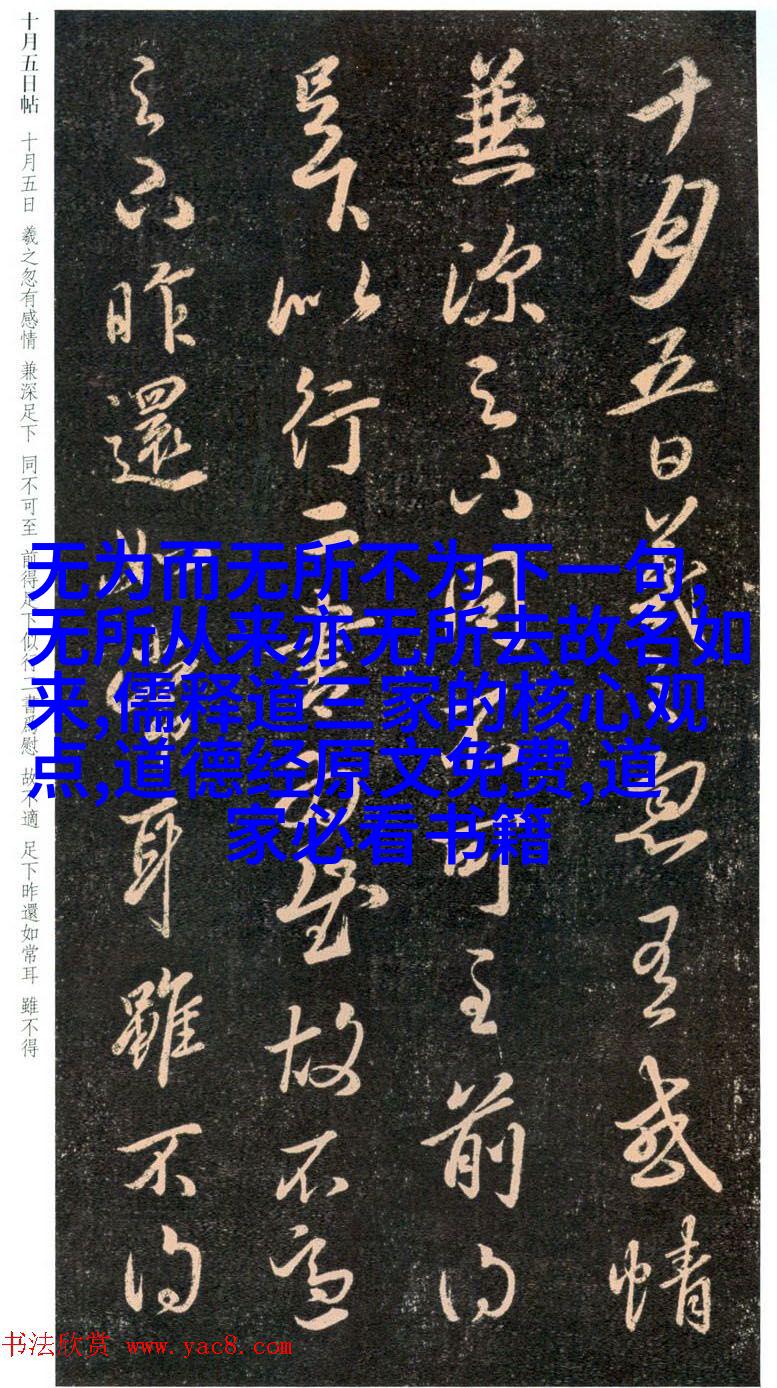 十月五日帖 十月五日 羲之忽有感情 兼深足下 同不可至 前得足下似行二書爲慰 故不適 足下昨還如常耳 雖不得
十月五日羲之忽有感情
兼深足下同不可至前得
足下以行二書爲慰故不適
足下昨還如常耳雖不得
无为而无所不为下一句,
无所从来亦无所去故名如
来,儒释道三家的核心观
点,道德经原文免费,道
家必看书籍
书法欣赏 www.yac8.com